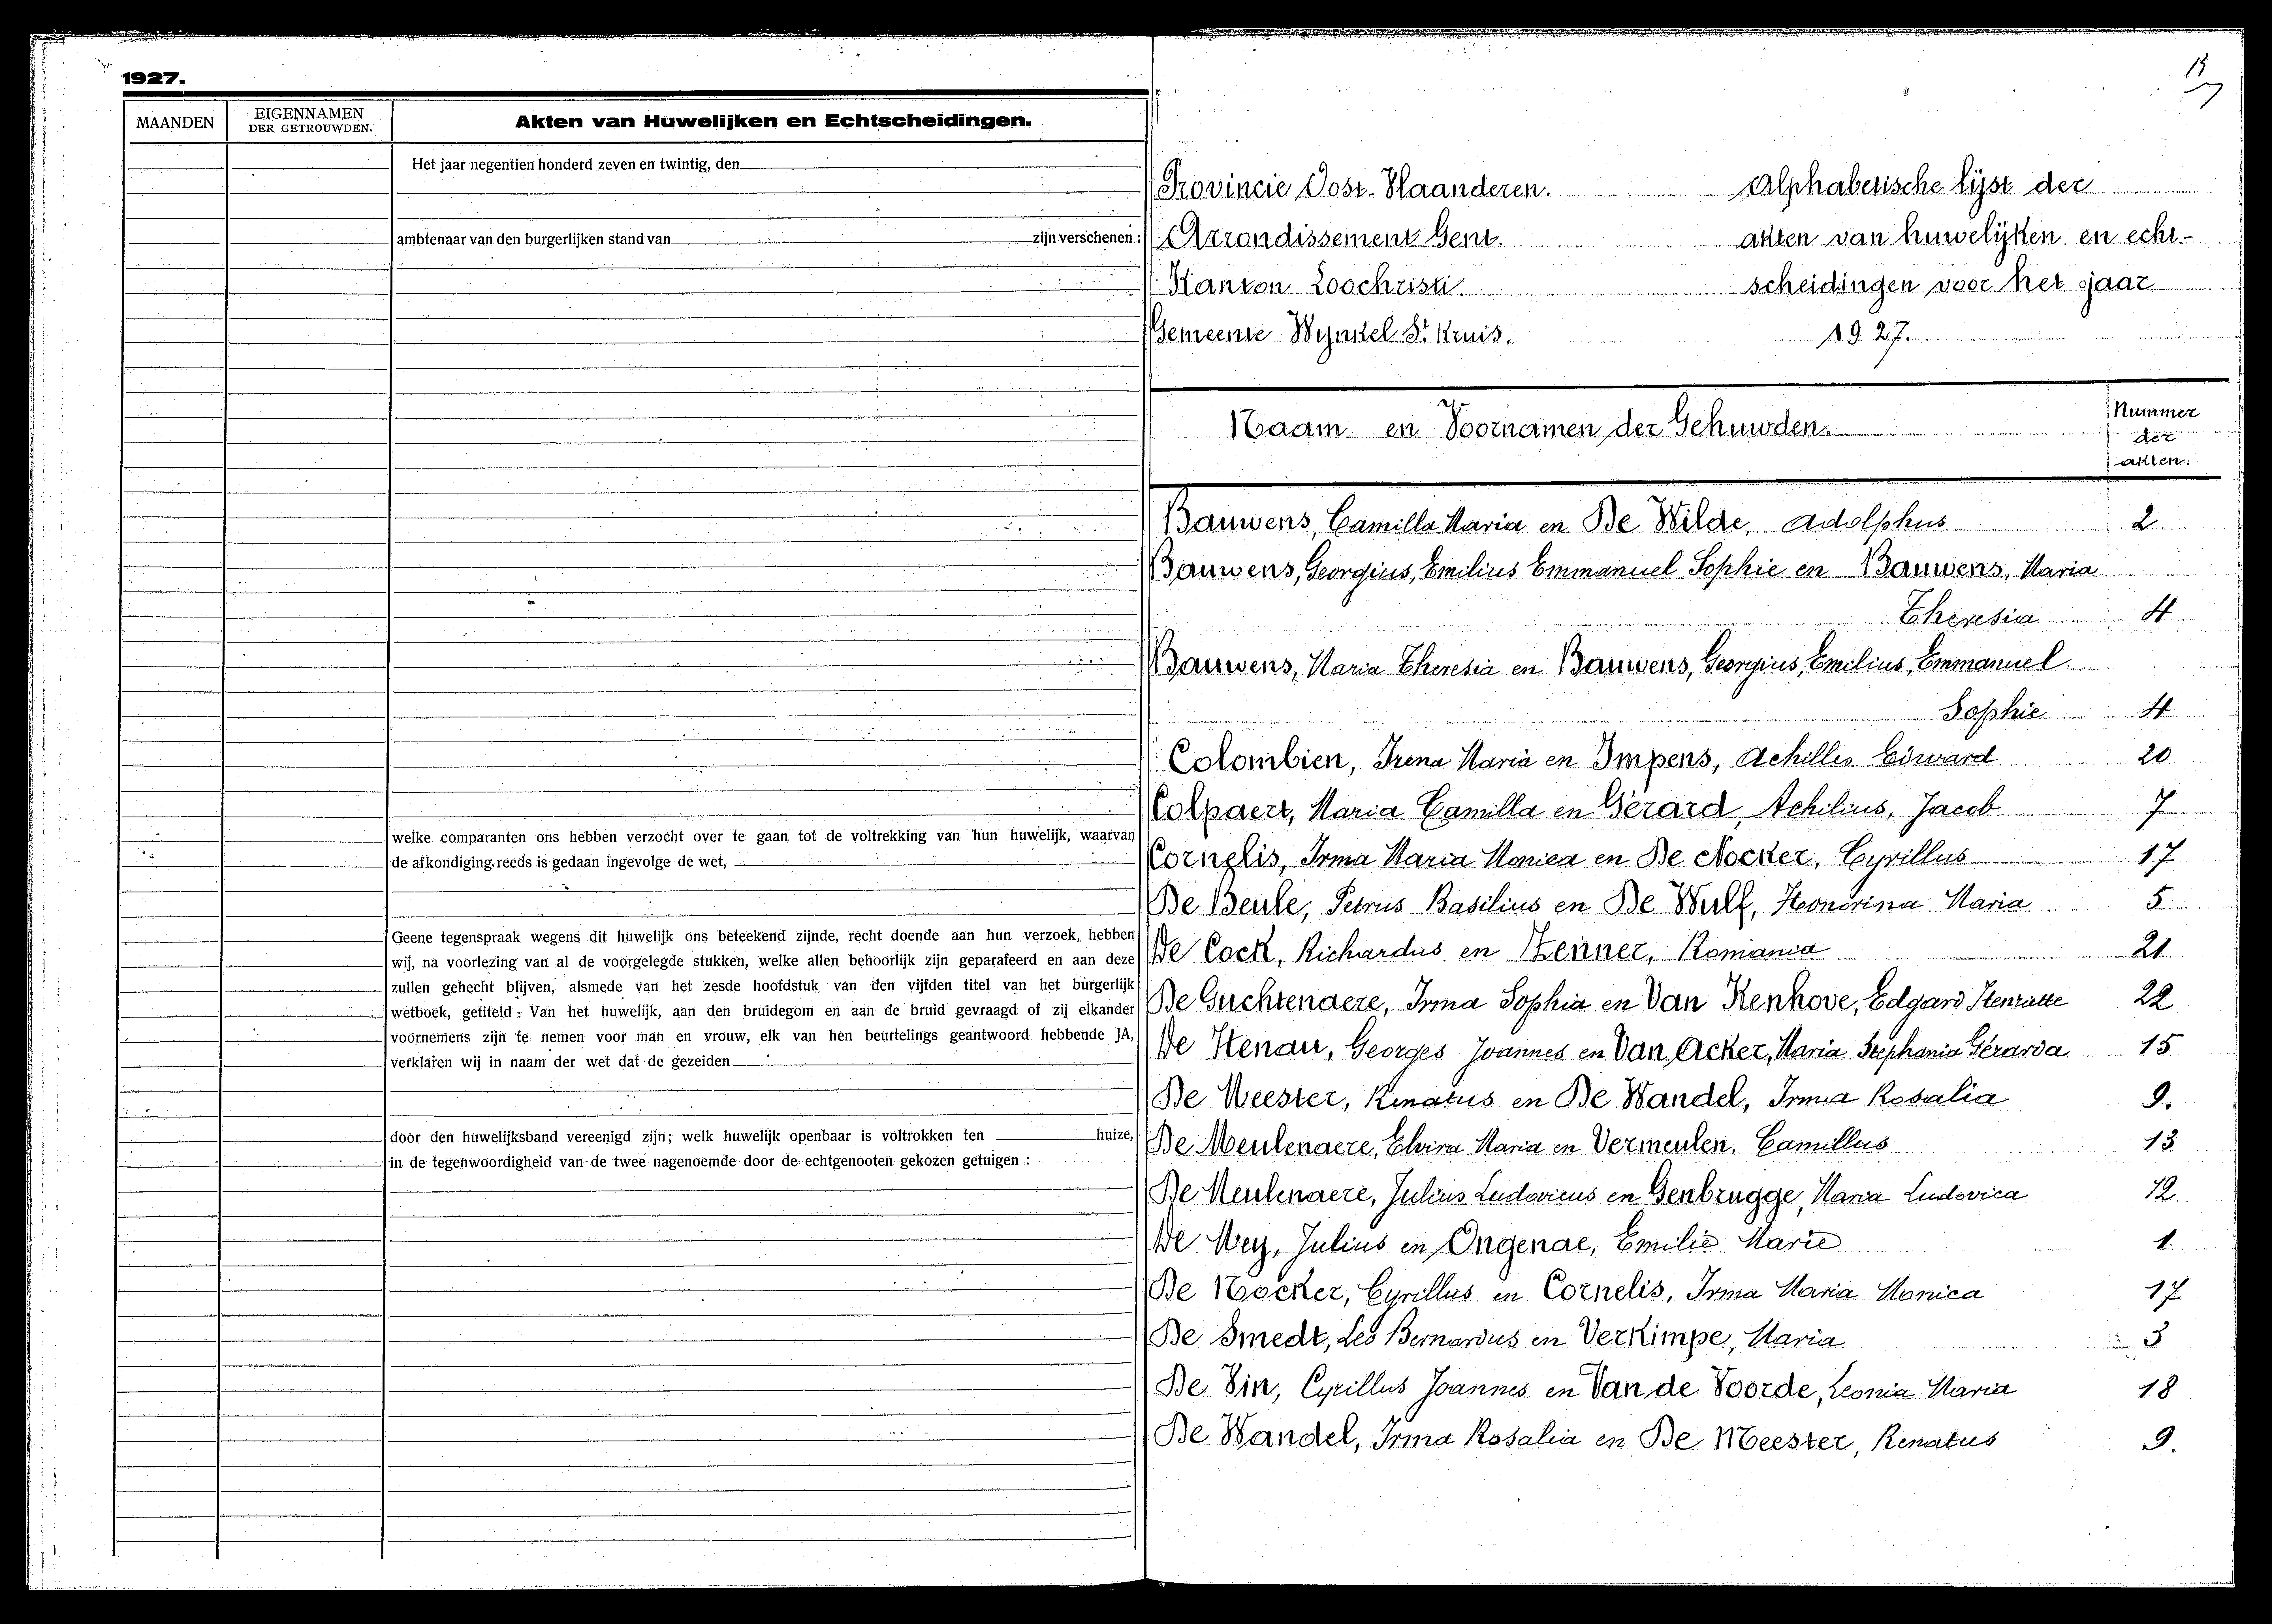 1927.
MAANDEN
EIGENNAMEN
DER GETROUWDEN.
Akten van Huwelijken en Echtscheidingen.
Het jaar negentien honderd zeven en twintig, den
ambtenaar van den burgerlijken stand van zijn verschenen :
welke comparanten ons hebben verzocht over te gaan tot de voltrekking van hun huwelijk, waarvan
de afkondiging reeds is gedaan ingevolge de wet,
Geene tegenspraak wegens dit huwelijk ons beteekend zijnde, recht doende aan hun verzoek, hebben
wij, na voorlezing van al de voorgelegde stukken, welke allen behoorlijk zijn geparafeerd en aan deze
zullen gehecht blijven, alsmede van het zesde hoofdstuk van den vijfden titel van het burgerlijk
wetboek, getiteld : Van het huwelijk, aan den bruidegom en aan de bruid gevraagd of zij elkander
voornemens zijn te nemen voor man en vrouw, elk van hen beurtelings geantwoord hebbende JA,
verklaren wij in naam der wet dat de gezeiden
door den huwelijksband vereenigd zijn; welk huwelijk openbaar is voltrokken ten huize,
in de tegenwoordigheid van de twee nagenoemde door de echtgenooten gekozen getuigen :
Provincie Oost-Vlaanderen.
Arrondissement Gent.
Kanton Loochristi
Gemeente Wynkel St Kruis.
Alphabetische lijst der
akten van huwelijken en echt-
scheidingen voor het jaar
1927.
Naam en Voornamen der Gehuwden.
Nummer
der
akten.
Bauwens, Camilla Maria en De Wilde, Adolphus 2
Bauwens, Georgius, Emilius Emmanuel Sophie en Bauwens, Maria
Theresia 4
Bauwens, Maria Theresia en Bauwens, Georgius, Emilius, Emmanuel
Sophie 4
Colombien, Irena Maria en Impens, Achilles Edward 20
Colpaert, Maria Camilla en Gérard, Achilius, Jacob 7
Cornelis, Irma Maria Monica en De Nocker, Cyrillus 17
De Beule, Petrus Basilius en De Wulf, Honorina Maria 5
De Cock, Richardus en Steiner, Romania 21
De Guchtenaere, Irma Sophia en Van Kenhove, Edgard Henriette 22
De Henau, Georges Joannes en Van Acker, Maria Stephania Gérarda 15
De Meester, Renatus en De Wandel, Irma Rosalia 9.
De Meulenaere, Elvira Maria en Vermeulen, Camillus 13
De Meulenaere, Julius Ludovicus en Genbrugge, Maria Ludovica 12
De Mey, Julius en Ongenae, Emilie Marie 1
De Nocker, Cyrillus en Cornelis, Irma Maria Monica 17
De Smedt, Leo Bernardus en Verkimpe, Maria 3
De Vin, Cyrillus Joannes en Van de Voorde, Leonia Maria 18
De Wandel, Irma Rosalia en De Meester, Renatus 9.